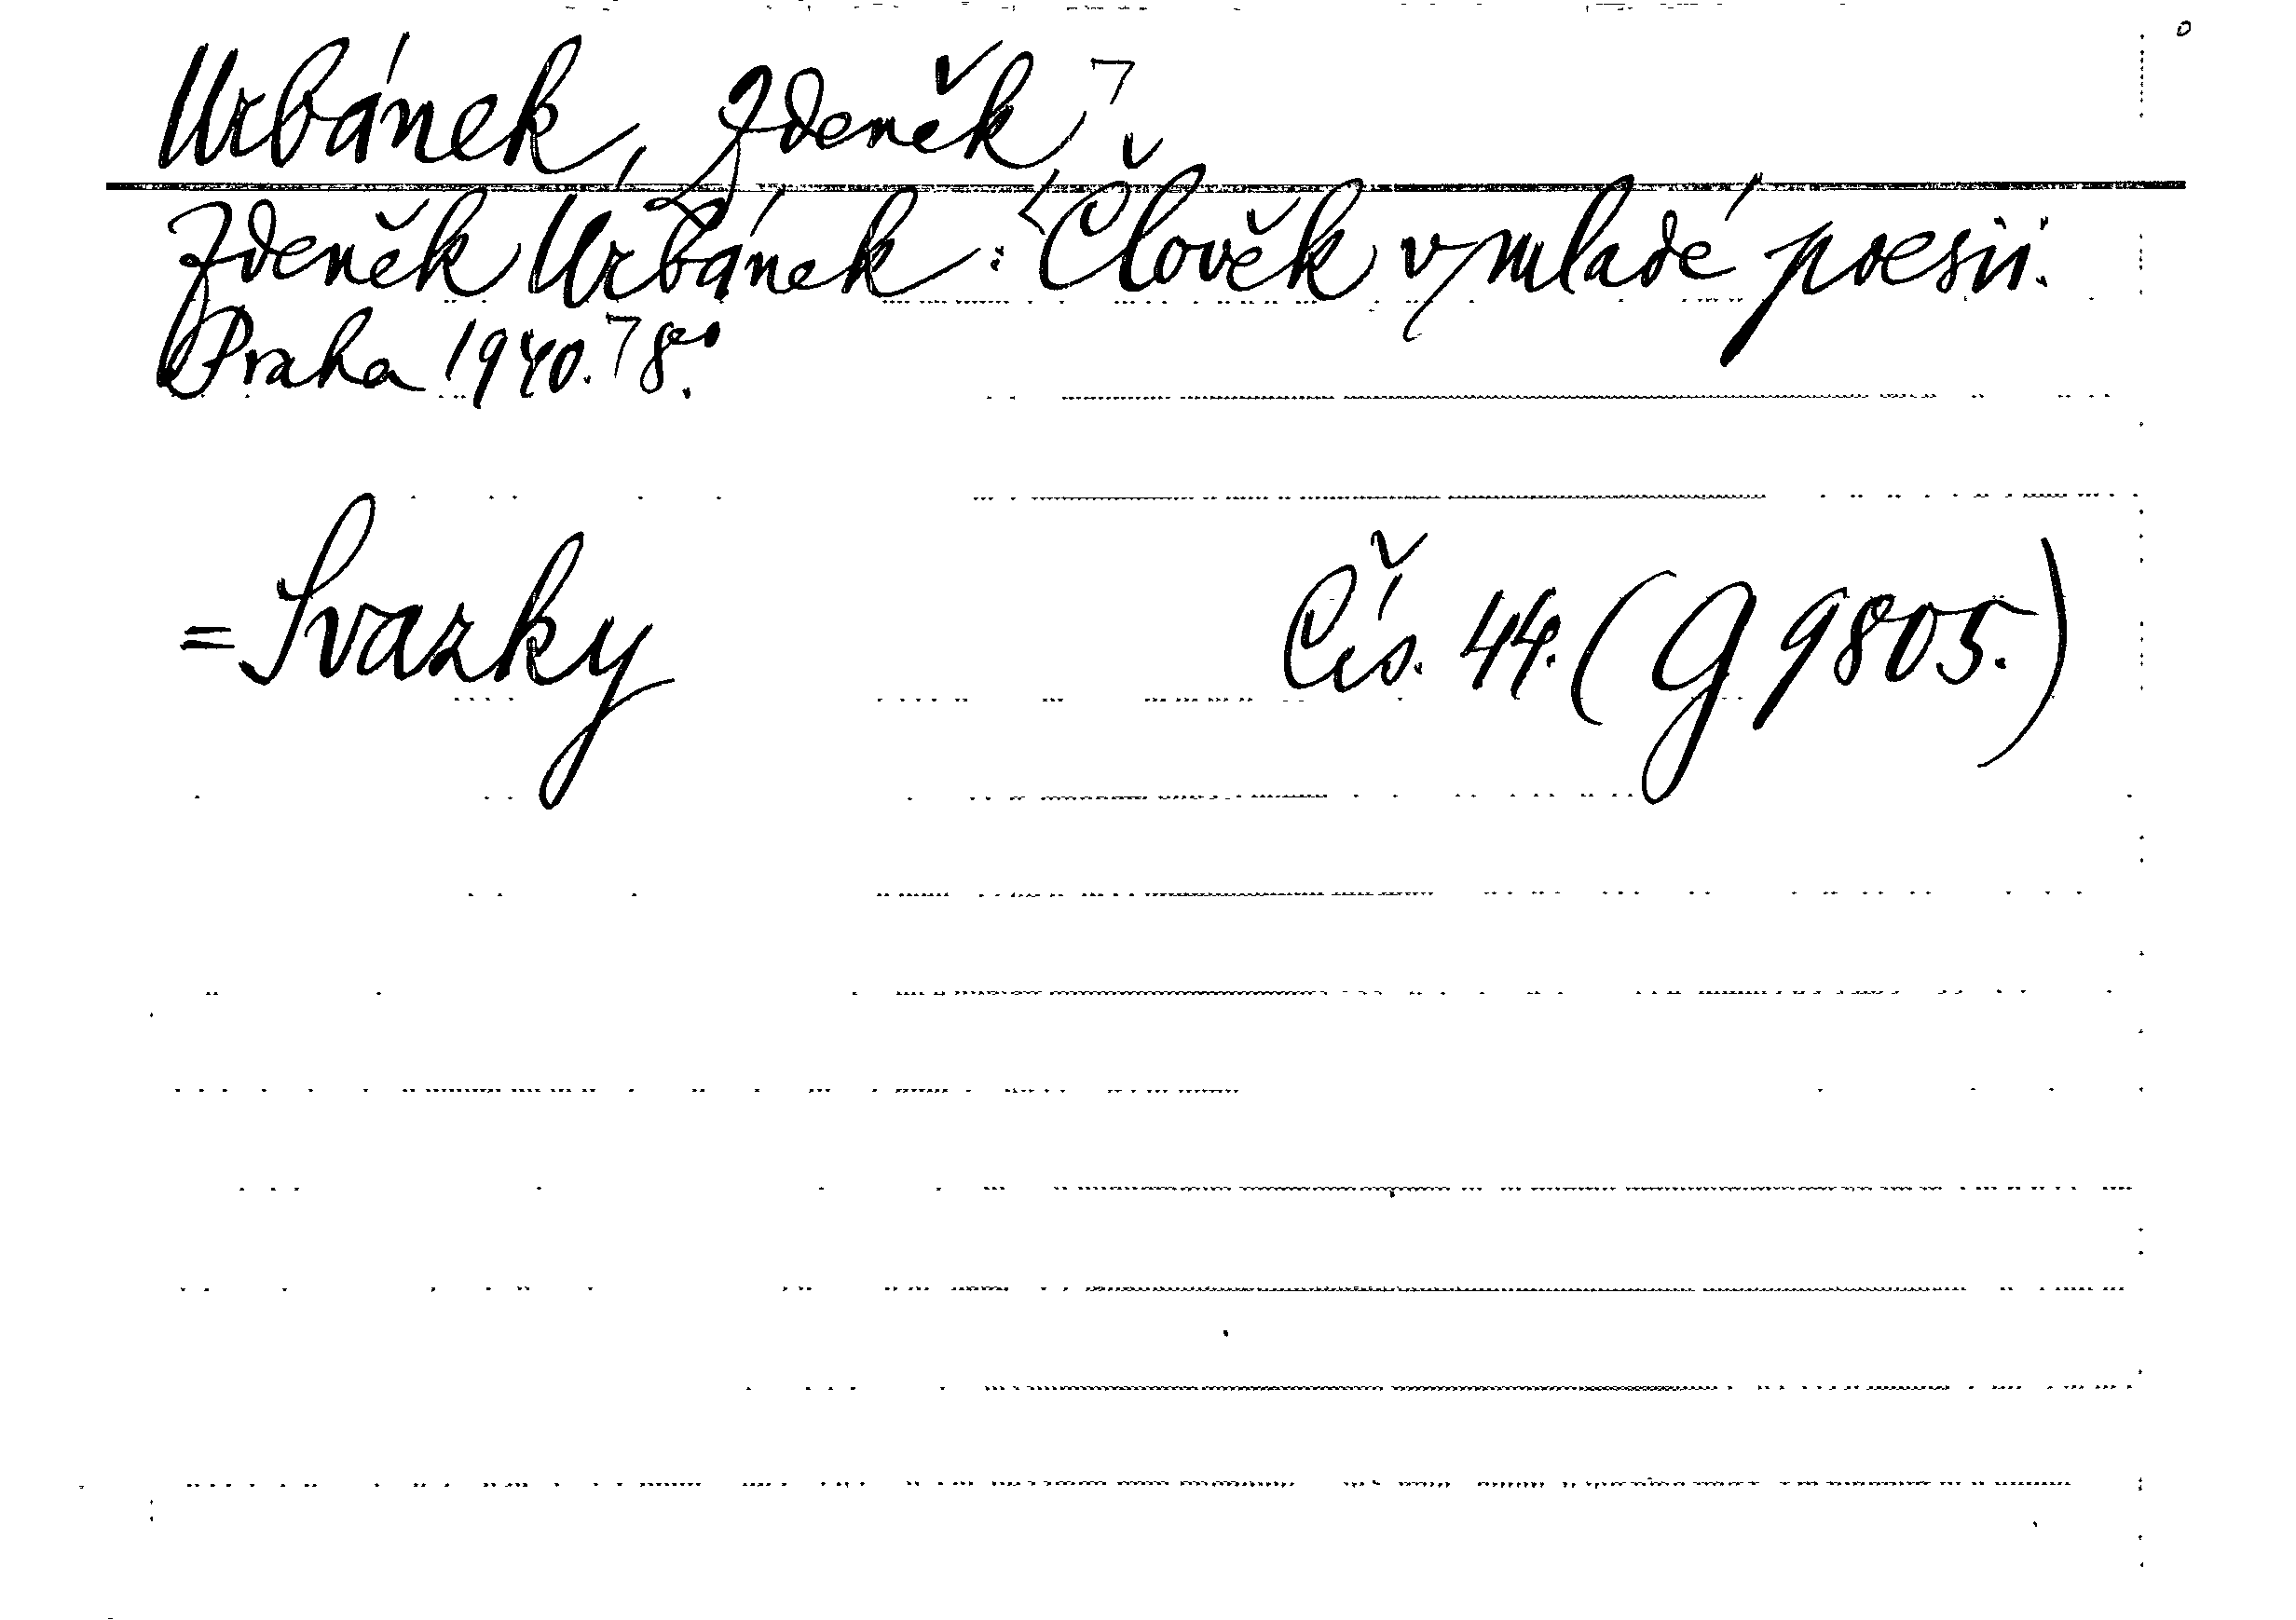 Urbánek, Zdeněk
Zdeněk Urbánek: Člověk v mladé poesii.
Praha 1940. 8°.
= Svazky Čís. 44. (G 9805.)